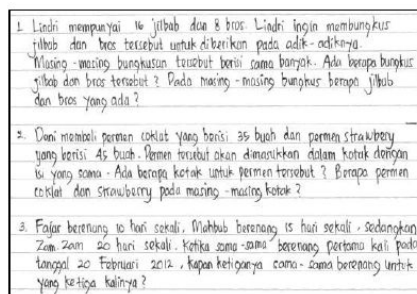 1. Lindri mempunyai 16 jilbab dan 8 bros. Lindri ingin membungkus
jilbab dan bros tersebut untuk diberikan pada adik-adiknya.
Masing-masing bungkusan tersebut berisi sama banyak. Ada berapa bungkus
jilbab dan bros tersebut? Pada masing-masing bungkus berapa jilbab
dan bros yang ada?
2. Doni membeli permen coklat yang berisi 35 buah dan permen strawbery
yang berisi 45 buah. Permen tersebut akan dimasukkan dalam kotak dengan
isi yang sama. Ada berapa kotak untuk permen tersebut? Berapa permen
coklat dan strawberry pada masing-masing kotak?
3. Fajar berenang 10 hari sekali, Mahbub berenang 15 hari sekali, sedangkan
Zam-Zam 20 hari sekali. Ketika sama-sama berenang pertama kali pada
tanggal 20 Februari 2012, kapan ketiganya sama-sama berenang untuk
yang ketiga kalinya?